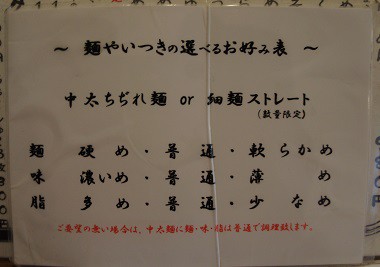 ～ 麺やいつきの選べるお好み表 ～
中太ちぢれ麺 or 細麺ストレート
(数量限定)
麺 硬め・普通・軟らかめ
味 濃いめ・普通・薄め
脂 多め・普通・少なめ
ご要望の無い場合は、中太麺に麺・味・脂は普通で調理致します。